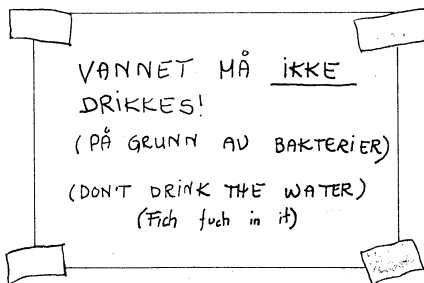 VANNET MÅ IKKE
DRIKKES!
(PÅ GRUNN AV BAKTERIER)
(DON'T DRINK THE WATER)
(Fich fuch in it)